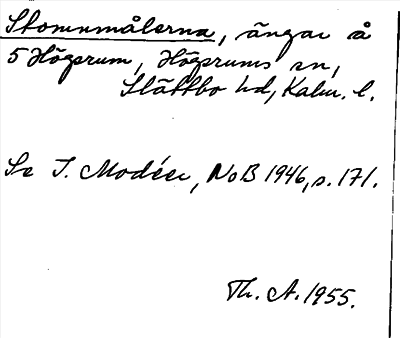 Stommålerna, ängar å
5 Högsrum, Högsrums sn,
Slättbo hd, Kalm. l.
Se I. Modéer, NoB 1946, s. 171.
Th. A. 1955.